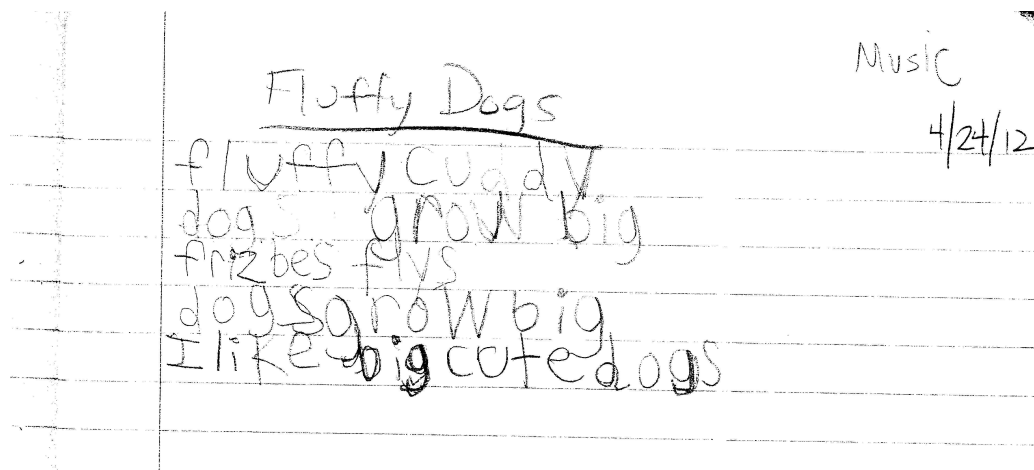 Music
Fluffy Dogs
4/24/12
fluffy cuddy
dogs grow big
frizbes flys
dogs grow big
I like big cute dogs